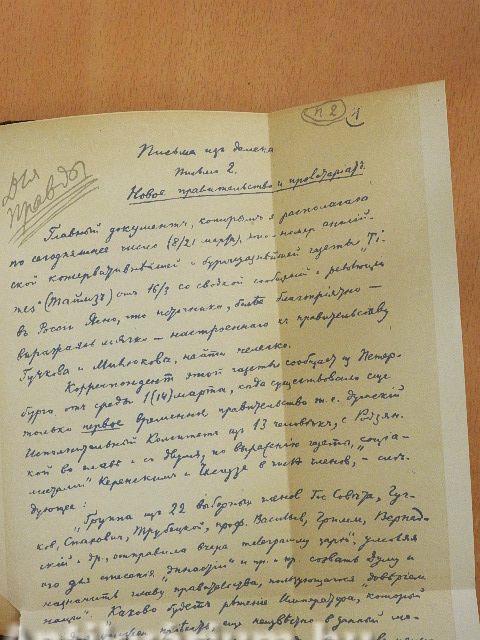 п 2 1
Письма изъ далека
Письмо 2.
Новое правительство и пролетариатъ.
Для
Правды
Главный документъ, которымъ я располагаю
по сегодняшнее число (8/21 марта), это – номер англій-
ской консервативнѣйшей и буржуазнѣйшей газеты „Ti-
mes“ (Таймсъ) отъ 16/3 со сводкой сообщеній о революции
въ Россіи. Ясно, что источника, болѣе благопріятно –
выражаясь мягко – настроеннаго къ правительству
Гучкова и Милюкова, найти нелегко.
Корреспондент этой газеты сообщает из Петер-
бурга от среды 1 (14) марта, когда существовало еще
только первое временное правительство т.е. думский
Исполнительный Комитет из 13 человѣкъ, с Родзян-
кой во главѣ и съ двумя, по выраженію газеты, „соціа-
листами“ Керенскимъ и Чхеидзе в числѣ членов, – слѣ-
дующее:
„Группа из 22 выборных членов Гос Совѣта, Гуч-
ков, Стахович, Трубецкой, проф. Васильев, Гримм, Вернад-
ский и др., отправила вчера телеграмму царю“, умоляя
его для спасения „династіи“ и пр. и пр. созвать Думу и
назначить главу правительства, пользующагося „довѣріем
націи“. „Каково будетъ рѣшеніе Императора, который